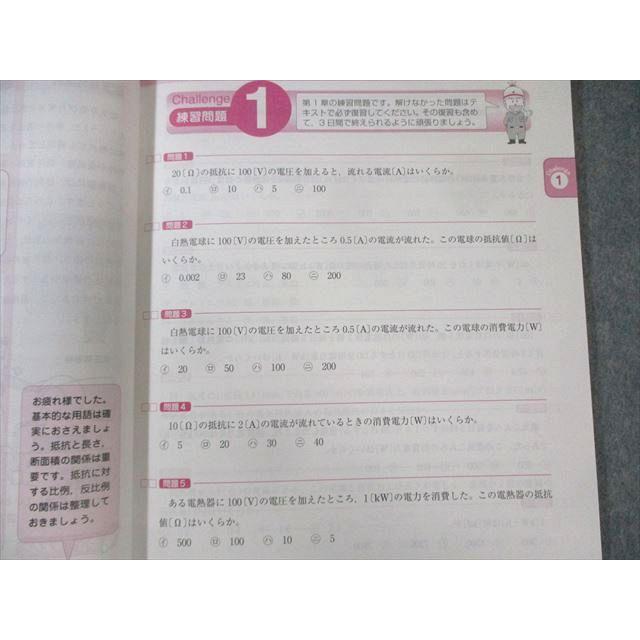 Challenge
練習問題
1
第1章の練習問題です。解けなかった問題はテ
キストで必ず復習してください。その復習も含め
て、3日間で終えられるように頑張りましょう。
Challenge
1
問題1
20〔Ω〕の抵抗に100〔V〕の電圧を加えると、流れる電流〔A〕はいくらか。
㋑ 0.1 ㋺ 10 ㋩ 5 ㋥ 100
問題2
白熱電球に100〔V〕の電圧を加えたところ0.5〔A〕の電流が流れた。この電球の抵抗値〔Ω〕は
いくらか。
㋑ 0.002 ㋺ 23 ㋩ 80 ㋥ 200
問題3
白熱電球に100〔V〕の電圧を加えたところ0.5〔A〕の電流が流れた。この電球の消費電力〔W〕
はいくらか。
㋑ 20 ㋺ 50 ㋩ 100 ㋥ 200
問題4
10〔Ω〕の抵抗に2〔A〕の電流が流れているときの消費電力〔W〕はいくらか。
㋑ 5 ㋺ 20 ㋩ 30 ㋥ 40
問題5
ある電熱器に100〔V〕の電圧を加えたところ、1〔kW〕の電力を消費した。この電熱器の抵抗
値〔Ω〕はいくらか。
㋑ 500 ㋺ 100 ㋩ 10 ㋥ 5
お疲れ様でした。
基本的な用語は確
実におさえましょ
う。抵抗と長さ、
断面積の関係は重
要です。抵抗に対
する比例、反比例
の関係は整理して
おきましょう。